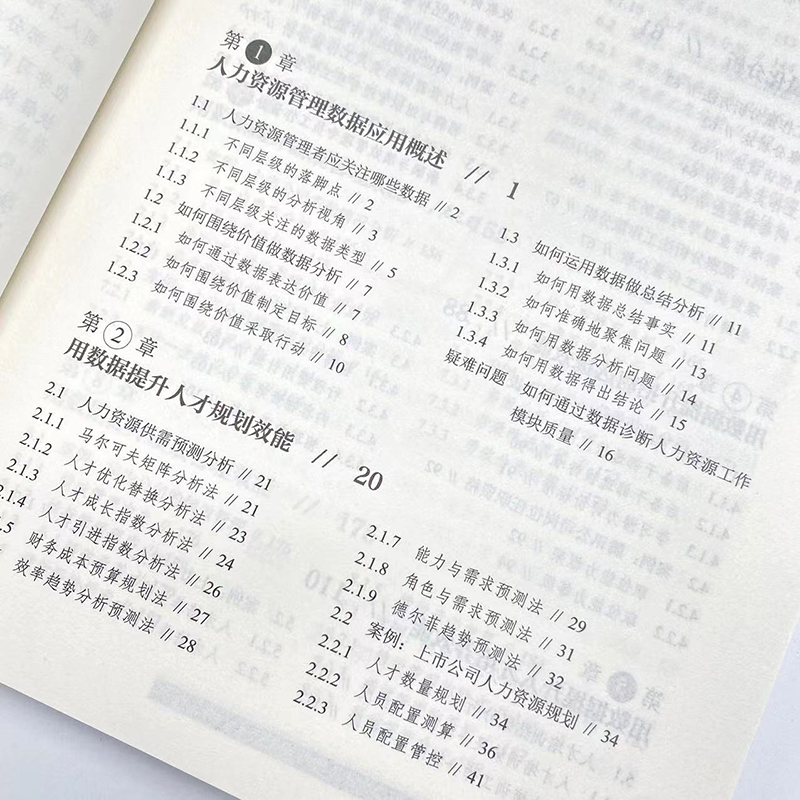 第1章
人力资源管理数据应用概述 // 1
1.1 人力资源管理者应关注哪些数据 // 2
1.1.1 不同层级的落脚点 // 2
1.1.2 不同层级的分析视角 // 3
1.1.3 不同层级关注的数据类型 // 5
1.2 如何围绕价值做数据分析 // 7
1.2.1 如何通过数据表达价值 // 7
1.2.2 如何围绕价值制定目标 // 8
1.2.3 如何围绕价值采取行动 // 10
1.3 如何运用数据做总结分析 // 11
1.3.1 如何用数据总结事实 // 11
1.3.2 如何准确地聚焦问题 // 13
1.3.3 如何用数据分析问题 // 14
1.3.4 如何用数据得出结论 // 15
疑难问题 如何通过数据诊断人力资源工作
模块质量 // 16
第2章
用数据提升人才规划效能 // 20
2.1 人力资源供需预测分析 // 21
2.1.1 马尔可夫矩阵分析法 // 21
2.1.2 人才优化替换分析法 // 23
2.1.3 人才成长指数分析法 // 24
2.1.4 人才引进指数分析法 // 26
.5 财务成本预算规划法 // 27
效率趋势分析预测法 // 28
2.1.7 能力与需求预测法 // 29
2.1.8 角色与需求预测法 // 31
2.1.9 德尔菲趋势预测法 // 32
2.2 案例：上市公司人力资源规划 // 34
2.2.1 人才数量规划 // 34
2.2.2 人员配置测算 // 36
2.2.3 人员配置管控 // 41